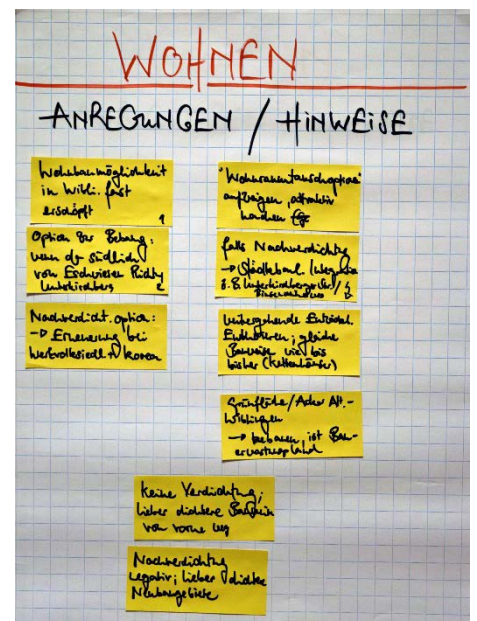 WOHNEN
ANREGUNGEN / HINWEISE
Wohnbaumöglichkeit
in Wibli. fast
erschöpft
1
Option der Bebauung:
wenn dr südlich
vom Eschwiesen Richtg
Unterkirchberg
2
Nachverdicht.option:
→ Erneuerung bei
"Wohnraumtauschoption"
aufzeigen, attraktiv
machen
falls Nachverdichtung
→ Städtebaul. Integration
z.B. Unterkirchberger Str. /
weitergehende Entwickl.
gleiche
Bauweise wie bis
bisher (Kettenhäuser)
Grünfläche/Acker Alt.-
Wiblingen
→ bebauen, ist Bau-
erwartungsland
Keine Verdichtung,
lieber dichtere Bauweise
von vorne weg
Nachverdichtung
negativ; lieber dichte
Neubaugebiete